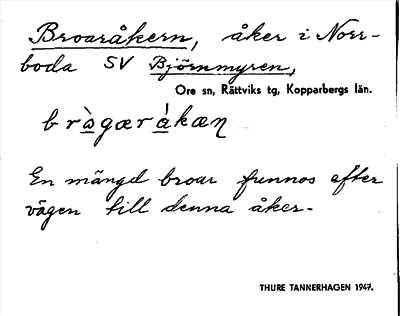 Broaråkern, åker i Norr-
boda SV Björnmyren,
Ore sn, Rättviks tg, Kopparbergs län.
bràgæråkæn
En mängd broar funnos efter
vägen till denna åker.
THURE TANNERHAGEN 1947.